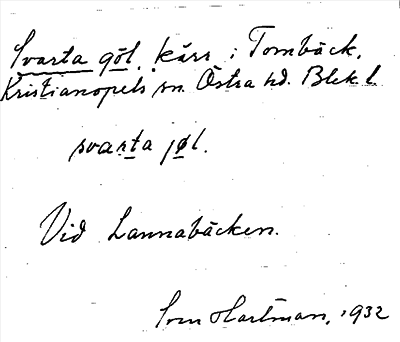 Svarta göl, kärr i Tornbäck,
Kristianopels sn. Östra hd. Blek. l.
svarta jøl.
Vid Lannabäcken.
Sven Hartman, 1932